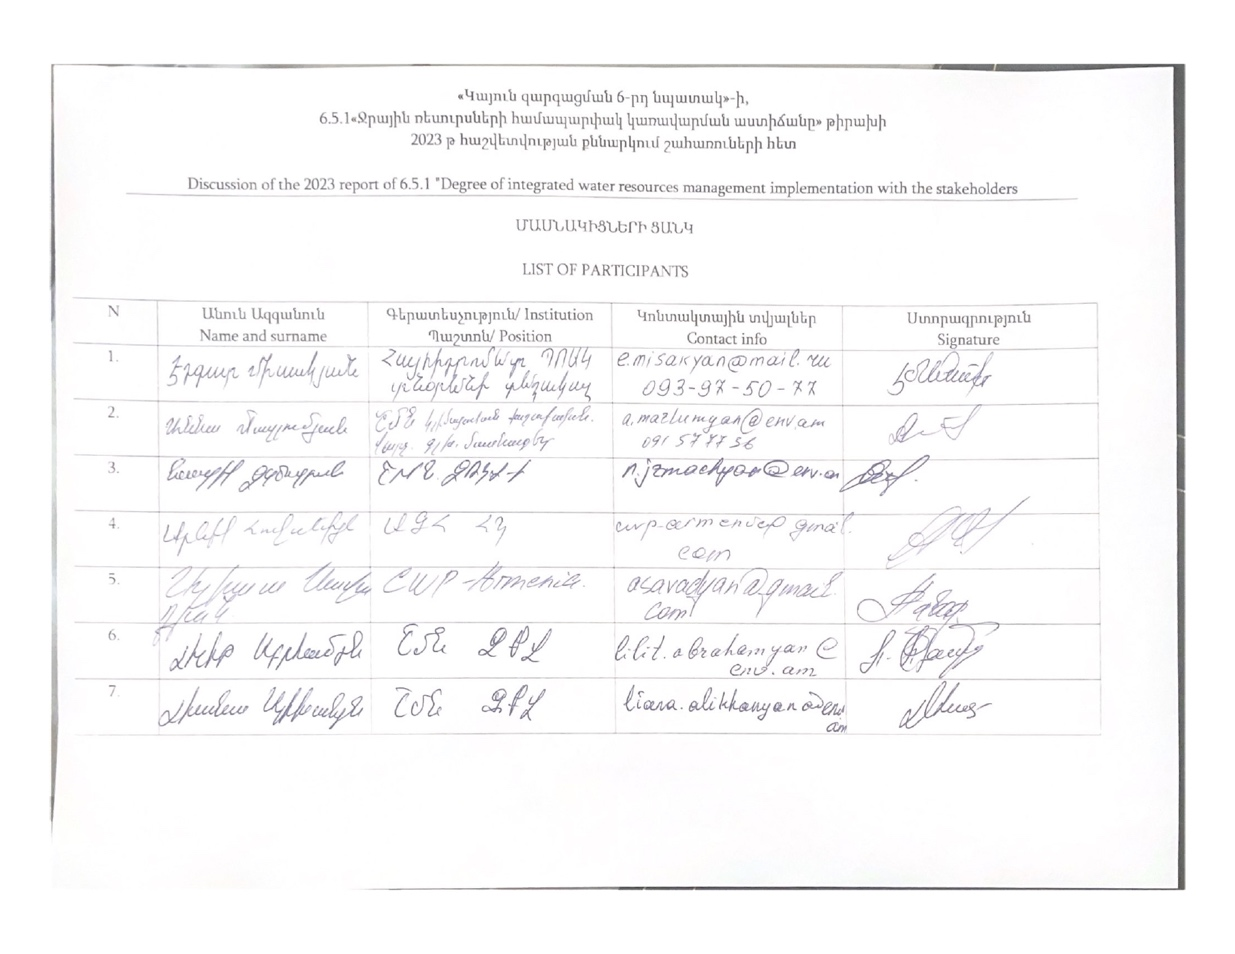 «Կայուն զարգացման 6-րդ նպատակ»-ի,
6.5.1«Ջրային ռեսուրսների համապարփակ կառավարման աստիճանը» թիրախի
2023 թ հաշվետվության քննարկում շահառուների հետ
Discussion of the 2023 report of 6.5.1 "Degree of integrated water resources management implementation with the stakeholders
ՄԱՍՆԱԿԻՑՆԵՐԻ ՑԱՆԿ
LIST OF PARTICIPANTS
N
Անուն Ազգանուն
Name and surname
Գերատեսչություն/ Institution
Պաշտոն/ Position
Կոնտակտային տվյալներ
Contact info
Ստորագրություն
Signature
1.
Էդգար Միսակյան
ՊՈԱԿ
տնօրենի տեղակալ
e.misakyan@mail.ru
093-97-50-77
2.
Աննա Մազլումյան
ՇՄՆ
a.mazlumyan@env.am
091 577736
3.
n.jzmachyan@env.am
4.
ԱՋՀ ՀԿ
cwp-armenia@gmail.
com
5.
CWP-Armenia.
asavadyan@gmail.
com
6.
Լիլիթ Աբրահամյան
ՇՄՆ ՋՔԼ
lilit.abrahamyan@
env.am
7.
Լիանա Ալիխանյան
ՇՄՆ ՋՔԼ
liana.alikhanyan@env.
am